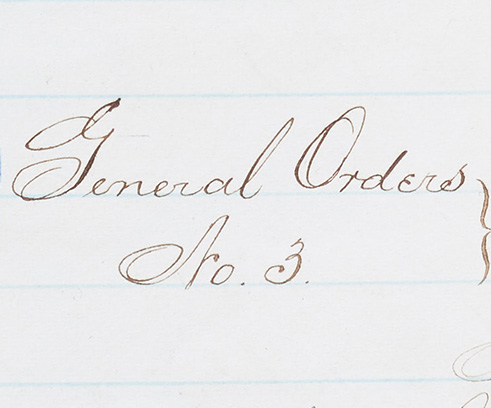 General Orders
No. 3.